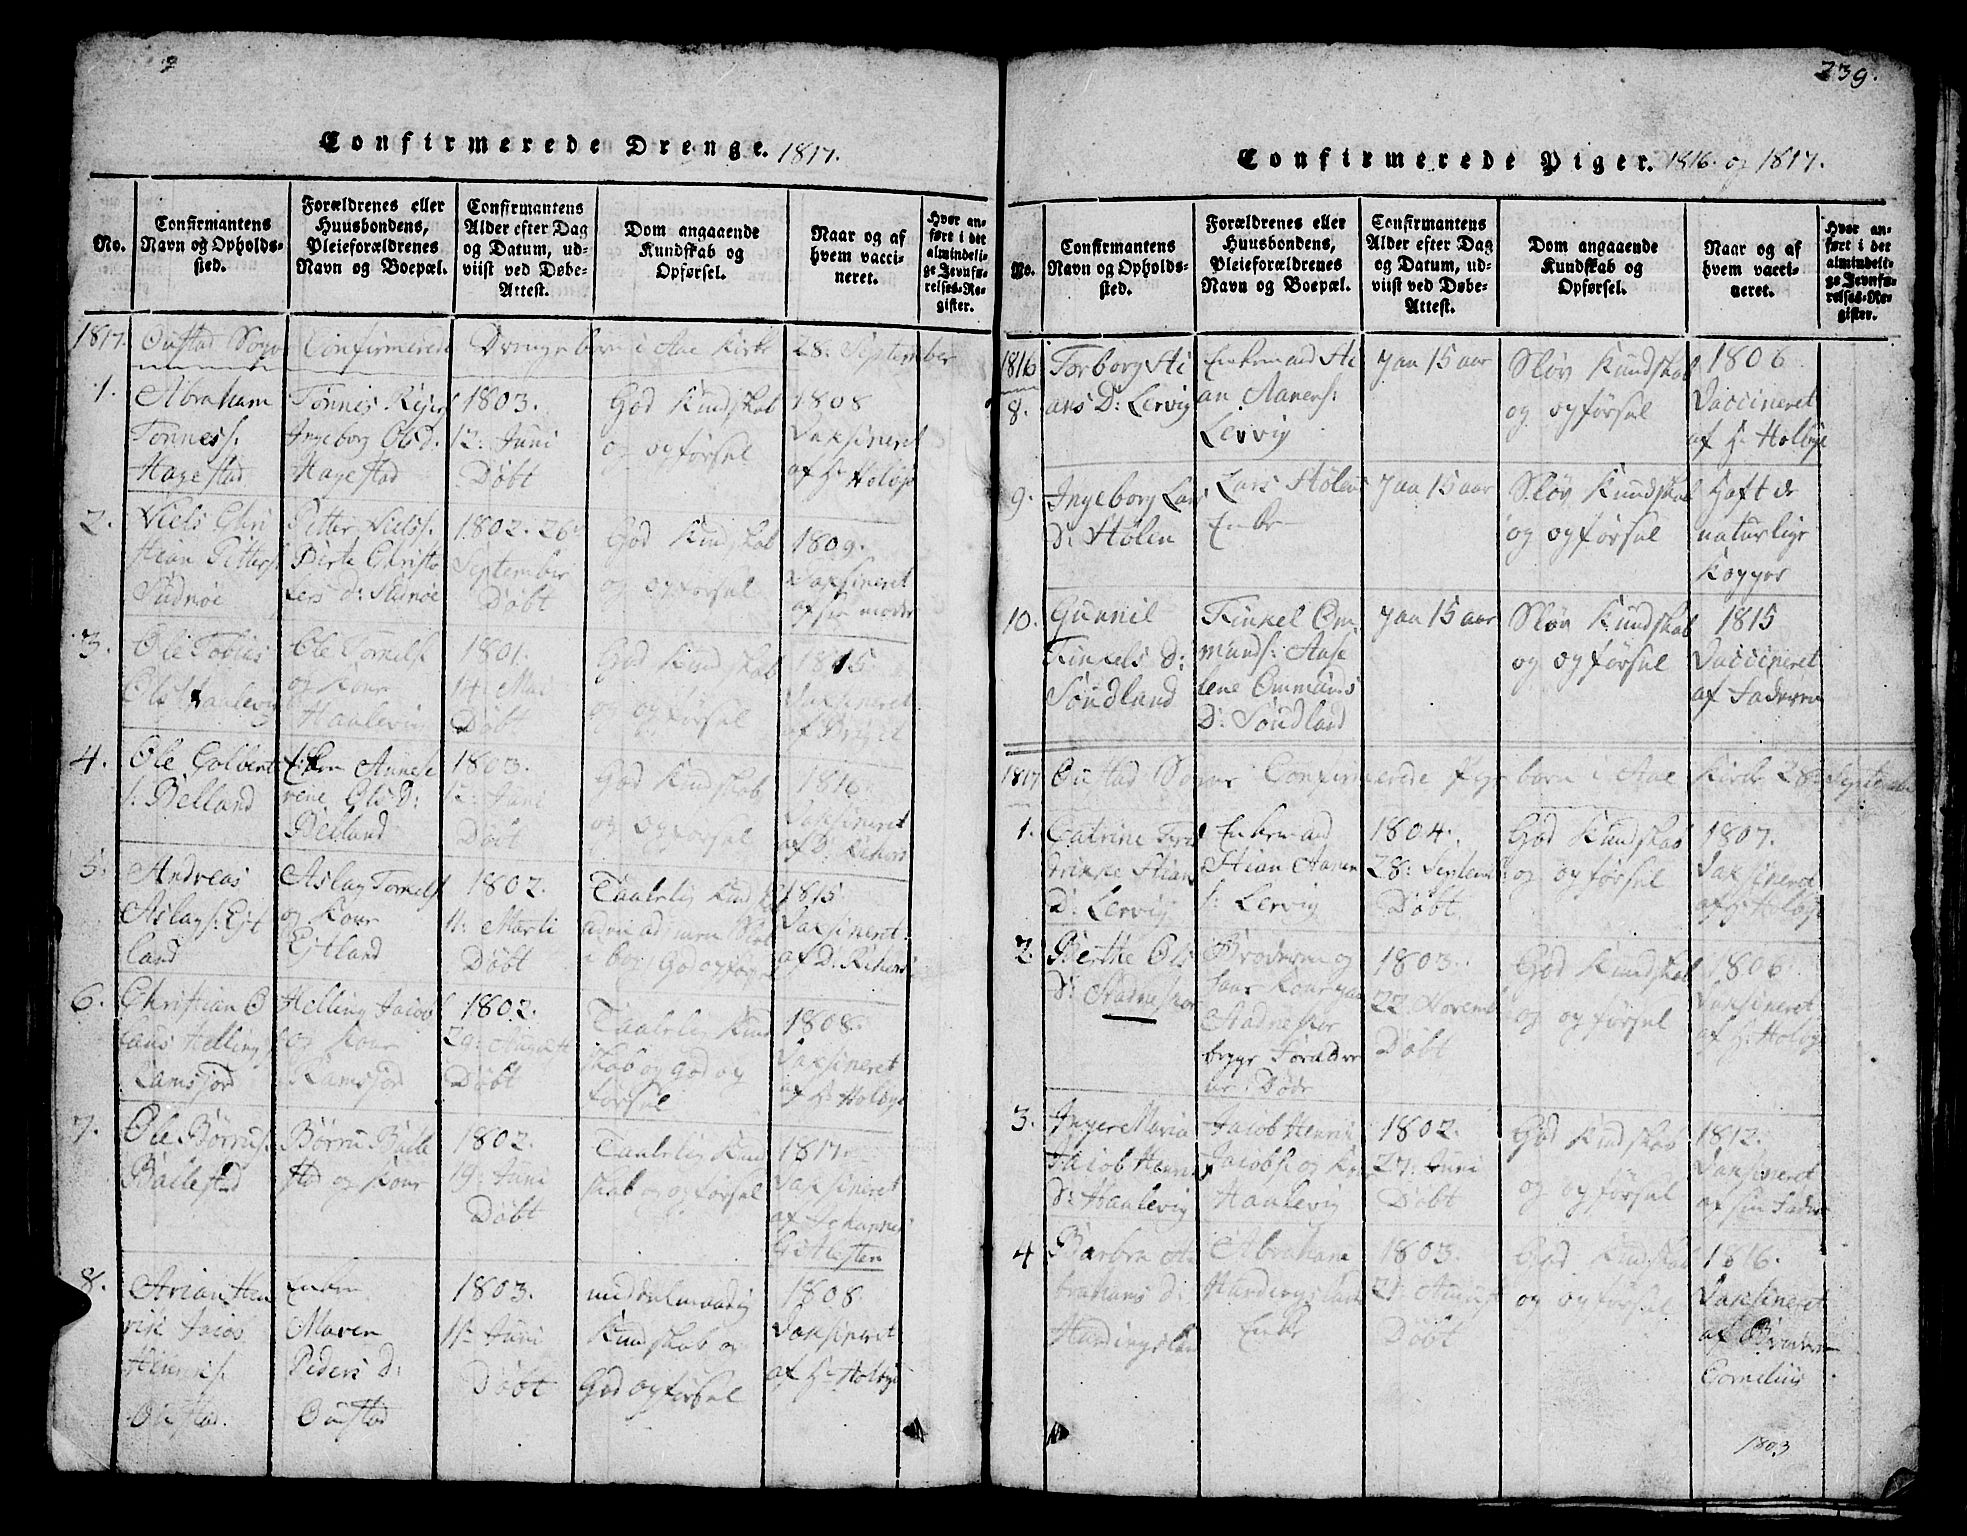 239.
Confirmerede Drenge. 1817.
No.
Confirmantens
Navn og Opholds-
sted.
Forældrenes eller
Huusbondens,
Pleieforældrenes
Navn og Boepæl.
Confirmantens
Alder efter Dag
og Datum, ud-
viist ved Døbe-
Attest.
Dom angaaende
Kundskab og
Opførsel.
Naar og af
hvem vacci-
neret.
Hvor an-
ført i det
almindeli-
ge Jevnfø-
relses-Re-
gister.
1817. Oustad Sogns Confirmerede Drengebørn i Aae Kirke 28: September
1.
Abraham
Tønness:
Hagestad
Tønnis
Ingeborg Ols D.
Hagestad
1803.
12: Juni
Døbt
God Kundskab
og opførsel
1808
Vaksineret
af Hr Holbye
2.
Niels Chri
stian Pitters:
Sudnøe
Pitter Niels:
Berte Christo
fers D:
1802. 26
September
Døbt
God Kundskab
og opførsel
1809.
Vaksineret
af sin moder
3.
Ole Tobias
Ols: Haalevig
Ole Tornels:
og Kone
Haalevig
1801.
14: Mai
Døbt
God Kundskab
og opførsel
1815
Vaksineret
af
4.
Ole Golbent
s: Belland
Enken Annese
rene Ols D:
Belland
1803.
12: Juni
Døbt
God Kundskab
og opførsel
1816
Vaksineret
af D:
5.
Andreas
Aslags: Eit
land
Aslag Tornels:
og Kone
Eitland
1802.
11: Marti
Døbt
Taalelig
God opførsel
1815
Vaksineret
af D:
6.
Christian
Helling
Ramsfjord
Helling Jacob
og Kone
Ramsfjord
1802.
29: August
Døbt
Taalelig Kund
skab og God op
førsel
1808.
Vaksineret
af Hr Holbye
7.
Ole Børrus:
Bøllestad
Børru Bølle
stad og Kone
1802.
19: Juni
Døbt
Taalelig Kund
skab og opførsel
1817
Vaksineret
af Johannes
8.
Arian Hen
rik Jacob
Henriks:
Oustad.
Enken
Maren
Peders D:
Oustad
1803.
Juni
Døbt
middelmaadig
Kundskab og
God opførsel
1808.
Vaksineret
af Hr Holbye
Confirmerede Piger. 1816. og 1817.
No.
Confirmantens
Navn og Opholds-
sted.
Forældrenes eller
Huusbondens,
Pleieforældrenes
Navn og Boepæl.
Confirmantens
Alder efter Dag
og Datum, ud-
viist ved Døbe-
Attest.
Dom angaaende
Kundskab og
Opførsel.
Naar og af
hvem vacci-
neret.
Hvor an-
ført i det
almindeli-
ge Jevnfø-
relses-Re-
gister.
1816
8.
Torborg Sti
ans D: Lervig
Enkemand Sti
an Aanens:
Lervig
15 aar
Sløv Kundskab
og opførsel
1806
Vaccineret
af Hr Holbye
9.
Ingeborg Lars
D: Hølen
Lars Hølens
Enke
15 aar
Sløv Kundskab
og opførsel
Haft de
naturlige
Kopper
10.
Gunnil
Tinkels D:
Søndland
Tinkel Om
munds: Aase
lene Ommunds
D: Søndland
15 aar
Sløv Kundskab
og opførsel
1815
Vaccineret
af Faderen
1817 Oustad Sogns Confirmerede Pigebørn i Aae Kirke 28: September
1.
Catrine
Stians
D: Lervig
Enkemand
Stian Aanen
s: Lervig
1804.
28: Septem
Døbt
God Kundskab
og opførsel
1807.
Vaksineret
af Hr Holbye
2.
Berthe Ols
D: Stadneskor
Broderen og
hans Kone paa
Stadneskor
begge Forældre
ne: Døde
1803.
22 Novemb
Døbt
God Kundskab
og opførsel
1806.
Vaksineret
af Hr Holbye
3.
Inger Maria
Jacob Henriks
D: Haalevig
Jacob Henrik
Jacobs: og Kone
Haalevig
1802.
27: Juni
Døbt
God Kundskab
og opførsel
1812.
Vaksineret
af sin Fader
4
Barbra A
brahams D:
Abraham
Enke
1803.
21: August
Døbt
God Kundskab
og opførsel
1816.
Vaksineret
af Broderen
Cornelius
1803